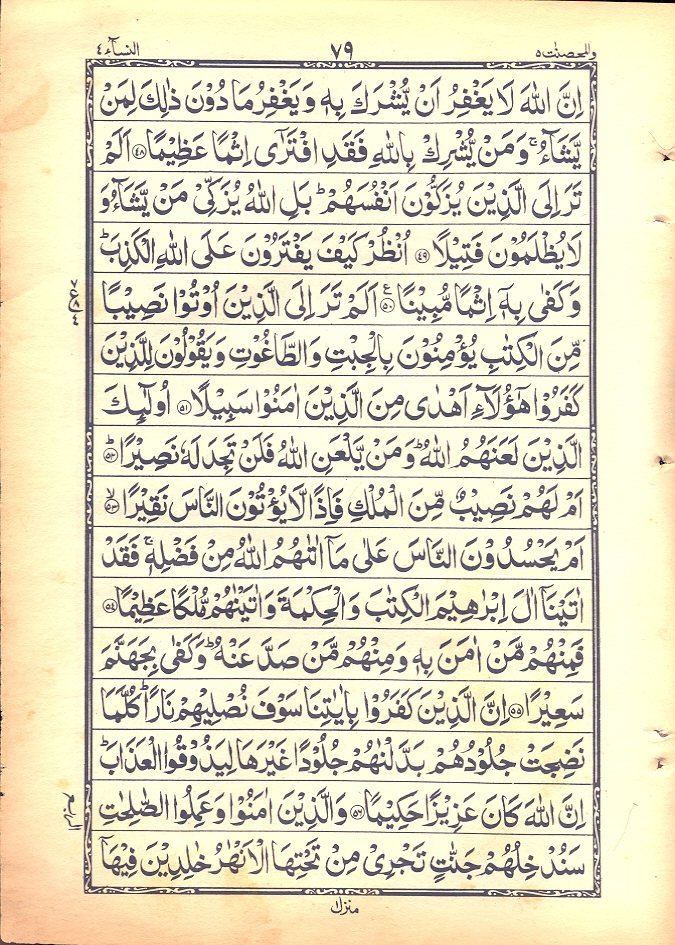 النسآء ٤ ٧٩ والمحصنت ٥
اِنَّ اللّٰهَ لَا يَغْفِرُ اَنْ يُّشْرَكَ بِهٖ وَيَغْفِرُ مَا دُوْنَ ذٰلِكَ لِمَنْ
يَّشَآءُ ۚ وَمَنْ يُّشْرِكْ بِاللّٰهِ فَقَدِ افْتَرٰٓى اِثْمًا عَظِيْمًا ﴿٤٨﴾ اَلَمْ
تَرَ اِلَى الَّذِيْنَ يُزَكُّوْنَ اَنْفُسَهُمْ ؕ بَلِ اللّٰهُ يُزَكِّيْ مَنْ يَّشَآءُ وَ
لَا يُظْلَمُوْنَ فَتِيْلًا ﴿٤٩﴾ اُنْظُرْ كَيْفَ يَفْتَرُوْنَ عَلَى اللّٰهِ الْكَذِبَ ؕ
وَكَفٰى بِهٖٓ اِثْمًا مُّبِيْنًا ﴿٥٠﴾ ع اَلَمْ تَرَ اِلَى الَّذِيْنَ اُوْتُوْا نَصِيْبًا
مِّنَ الْكِتٰبِ يُؤْمِنُوْنَ بِالْجِبْتِ وَالطَّاغُوْتِ وَيَقُوْلُوْنَ لِلَّذِيْنَ
كَفَرُوْا هٰٓؤُلَآءِ اَهْدٰى مِنَ الَّذِيْنَ اٰمَنُوْا سَبِيْلًا ﴿٥١﴾ اُولٰٓئِكَ
الَّذِيْنَ لَعَنَهُمُ اللّٰهُ ؕ وَمَنْ يَّلْعَنِ اللّٰهُ فَلَنْ تَجِدَ لَهٗ نَصِيْرًا ﴿٥٢﴾ ؕ
اَمْ لَهُمْ نَصِيْبٌ مِّنَ الْمُلْكِ فَاِذًا لَّا يُؤْتُوْنَ النَّاسَ نَقِيْرًا ﴿٥٣﴾ ۙ
اَمْ يَحْسُدُوْنَ النَّاسَ عَلٰى مَآ اٰتٰىهُمُ اللّٰهُ مِنْ فَضْلِهٖ ۚ فَقَدْ
اٰتَيْنَآ اٰلَ اِبْرٰهِيْمَ الْكِتٰبَ وَالْحِكْمَةَ وَاٰتَيْنٰهُمْ مُّلْكًا عَظِيْمًا ﴿٥٤﴾
فَمِنْهُمْ مَّنْ اٰمَنَ بِهٖ وَمِنْهُمْ مَّنْ صَدَّ عَنْهُ ؕ وَكَفٰى بِجَهَنَّمَ
سَعِيْرًا ﴿٥٥﴾ اِنَّ الَّذِيْنَ كَفَرُوْا بِاٰيٰتِنَا سَوْفَ نُصْلِيْهِمْ نَارًا ؕ كُلَّمَا
نَضِجَتْ جُلُوْدُهُمْ بَدَّلْنٰهُمْ جُلُوْدًا غَيْرَهَا لِيَذُوْقُوا الْعَذَابَ ؕ
اِنَّ اللّٰهَ كَانَ عَزِيْزًا حَكِيْمًا ﴿٥٦﴾ وَالَّذِيْنَ اٰمَنُوْا وَعَمِلُوا الصّٰلِحٰتِ
سَنُدْخِلُهُمْ جَنّٰتٍ تَجْرِيْ مِنْ تَحْتِهَا الْاَنْهٰرُ خٰلِدِيْنَ فِيْهَآ
منزل ١